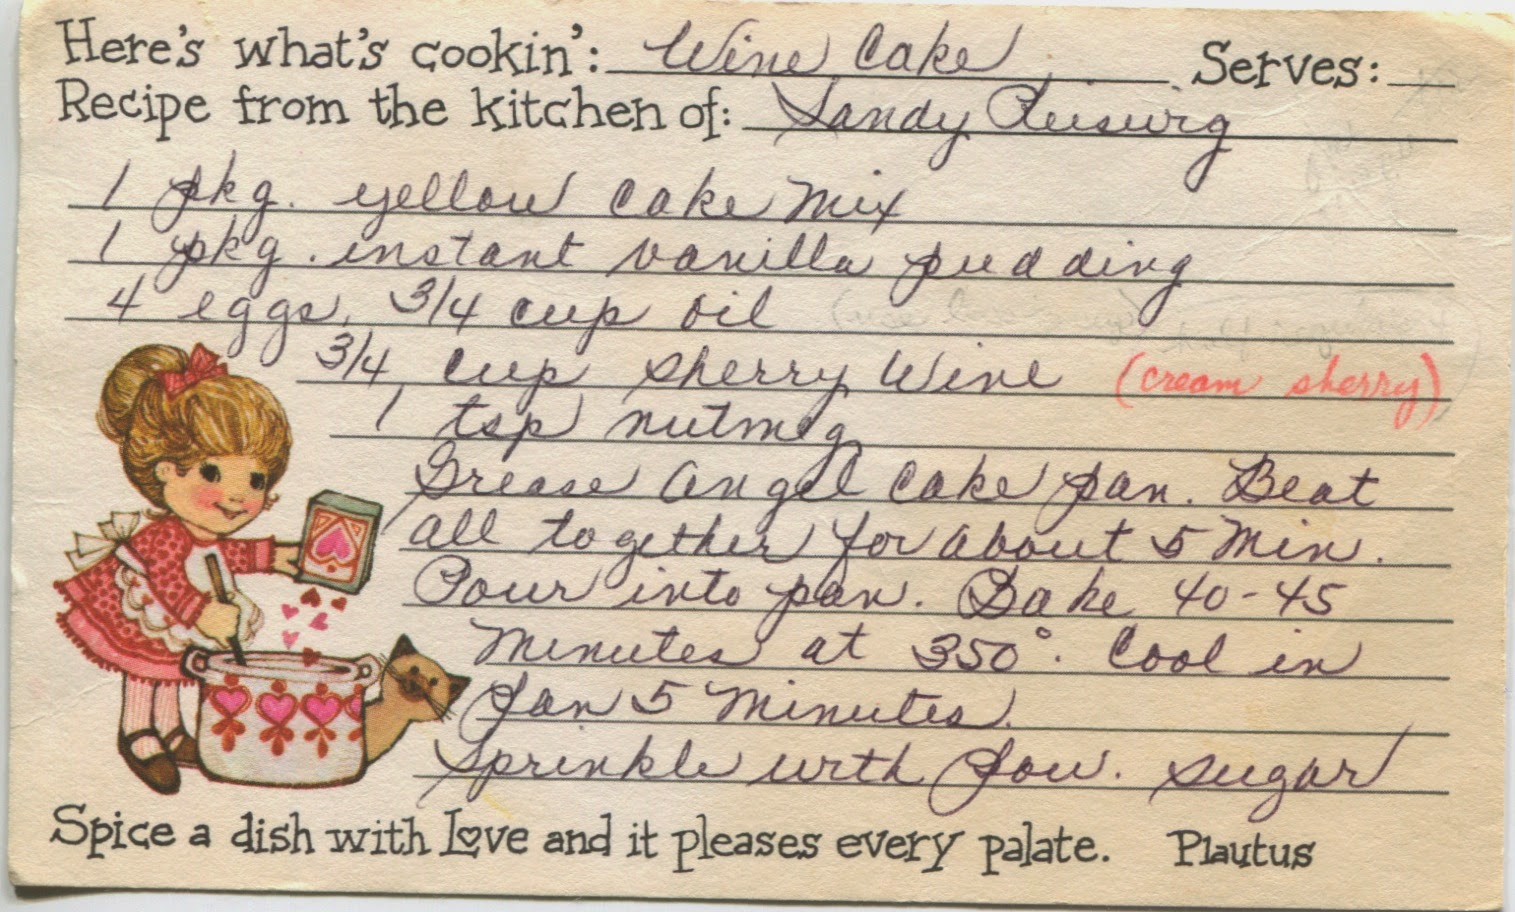 Here's what's cookin': Wine Cake Serves:
Recipe from the kitchen of: Sandy
1 pkg. yellow cake mix
1 pkg. instant vanilla pudding
4 eggs, 3/4 cup oil
3/4 cup sherry wine (cream sherry)
1 tsp nutmeg
Grease angel cake pan. Beat
all together for about 5 min.
Pour into pan. Bake 40-45
minutes at 350°. Cool in
pan 5 minutes.
Sprinkle with pow. sugar
Spice a dish with Love and it pleases every palate. Plautus